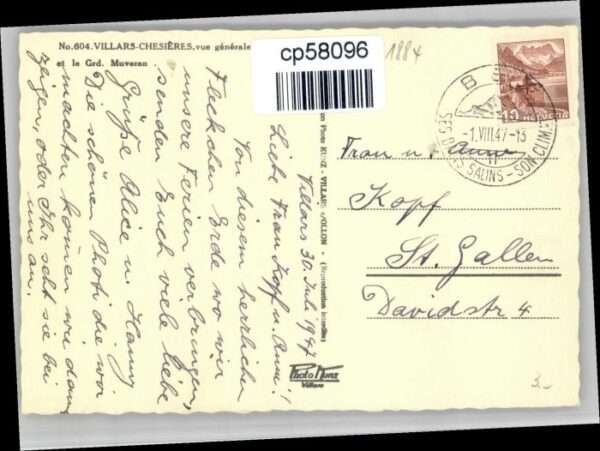 No. 604. VILLARS-CHESIÈRES, vue générale
et le Grd. Muveran
cp58096
1884
HELVETIA
10
BEX
-1.VIII.47-13
SES BAINS SALINS - SON CLIMAT
Villars 30. Juli 1947
Liebe Frau Kopf u. Anna!
Von diesem herrlichen
Fleckchen Erde wo wir
unsere Ferien verbringen,
senden Euch viele liebe
Grüße Alice u. Hanny
Die schönen Photi die wir
machten können wir dann
zeigen, oder Ihr seht sie bei
uns an.
Photo KUNZ, VILLARS s/OLLON - (Reproduction interdite)
Photo Kunz
Villars
Frau u. Anna
Kopf
St. Gallen
Davidstr 4
3.-